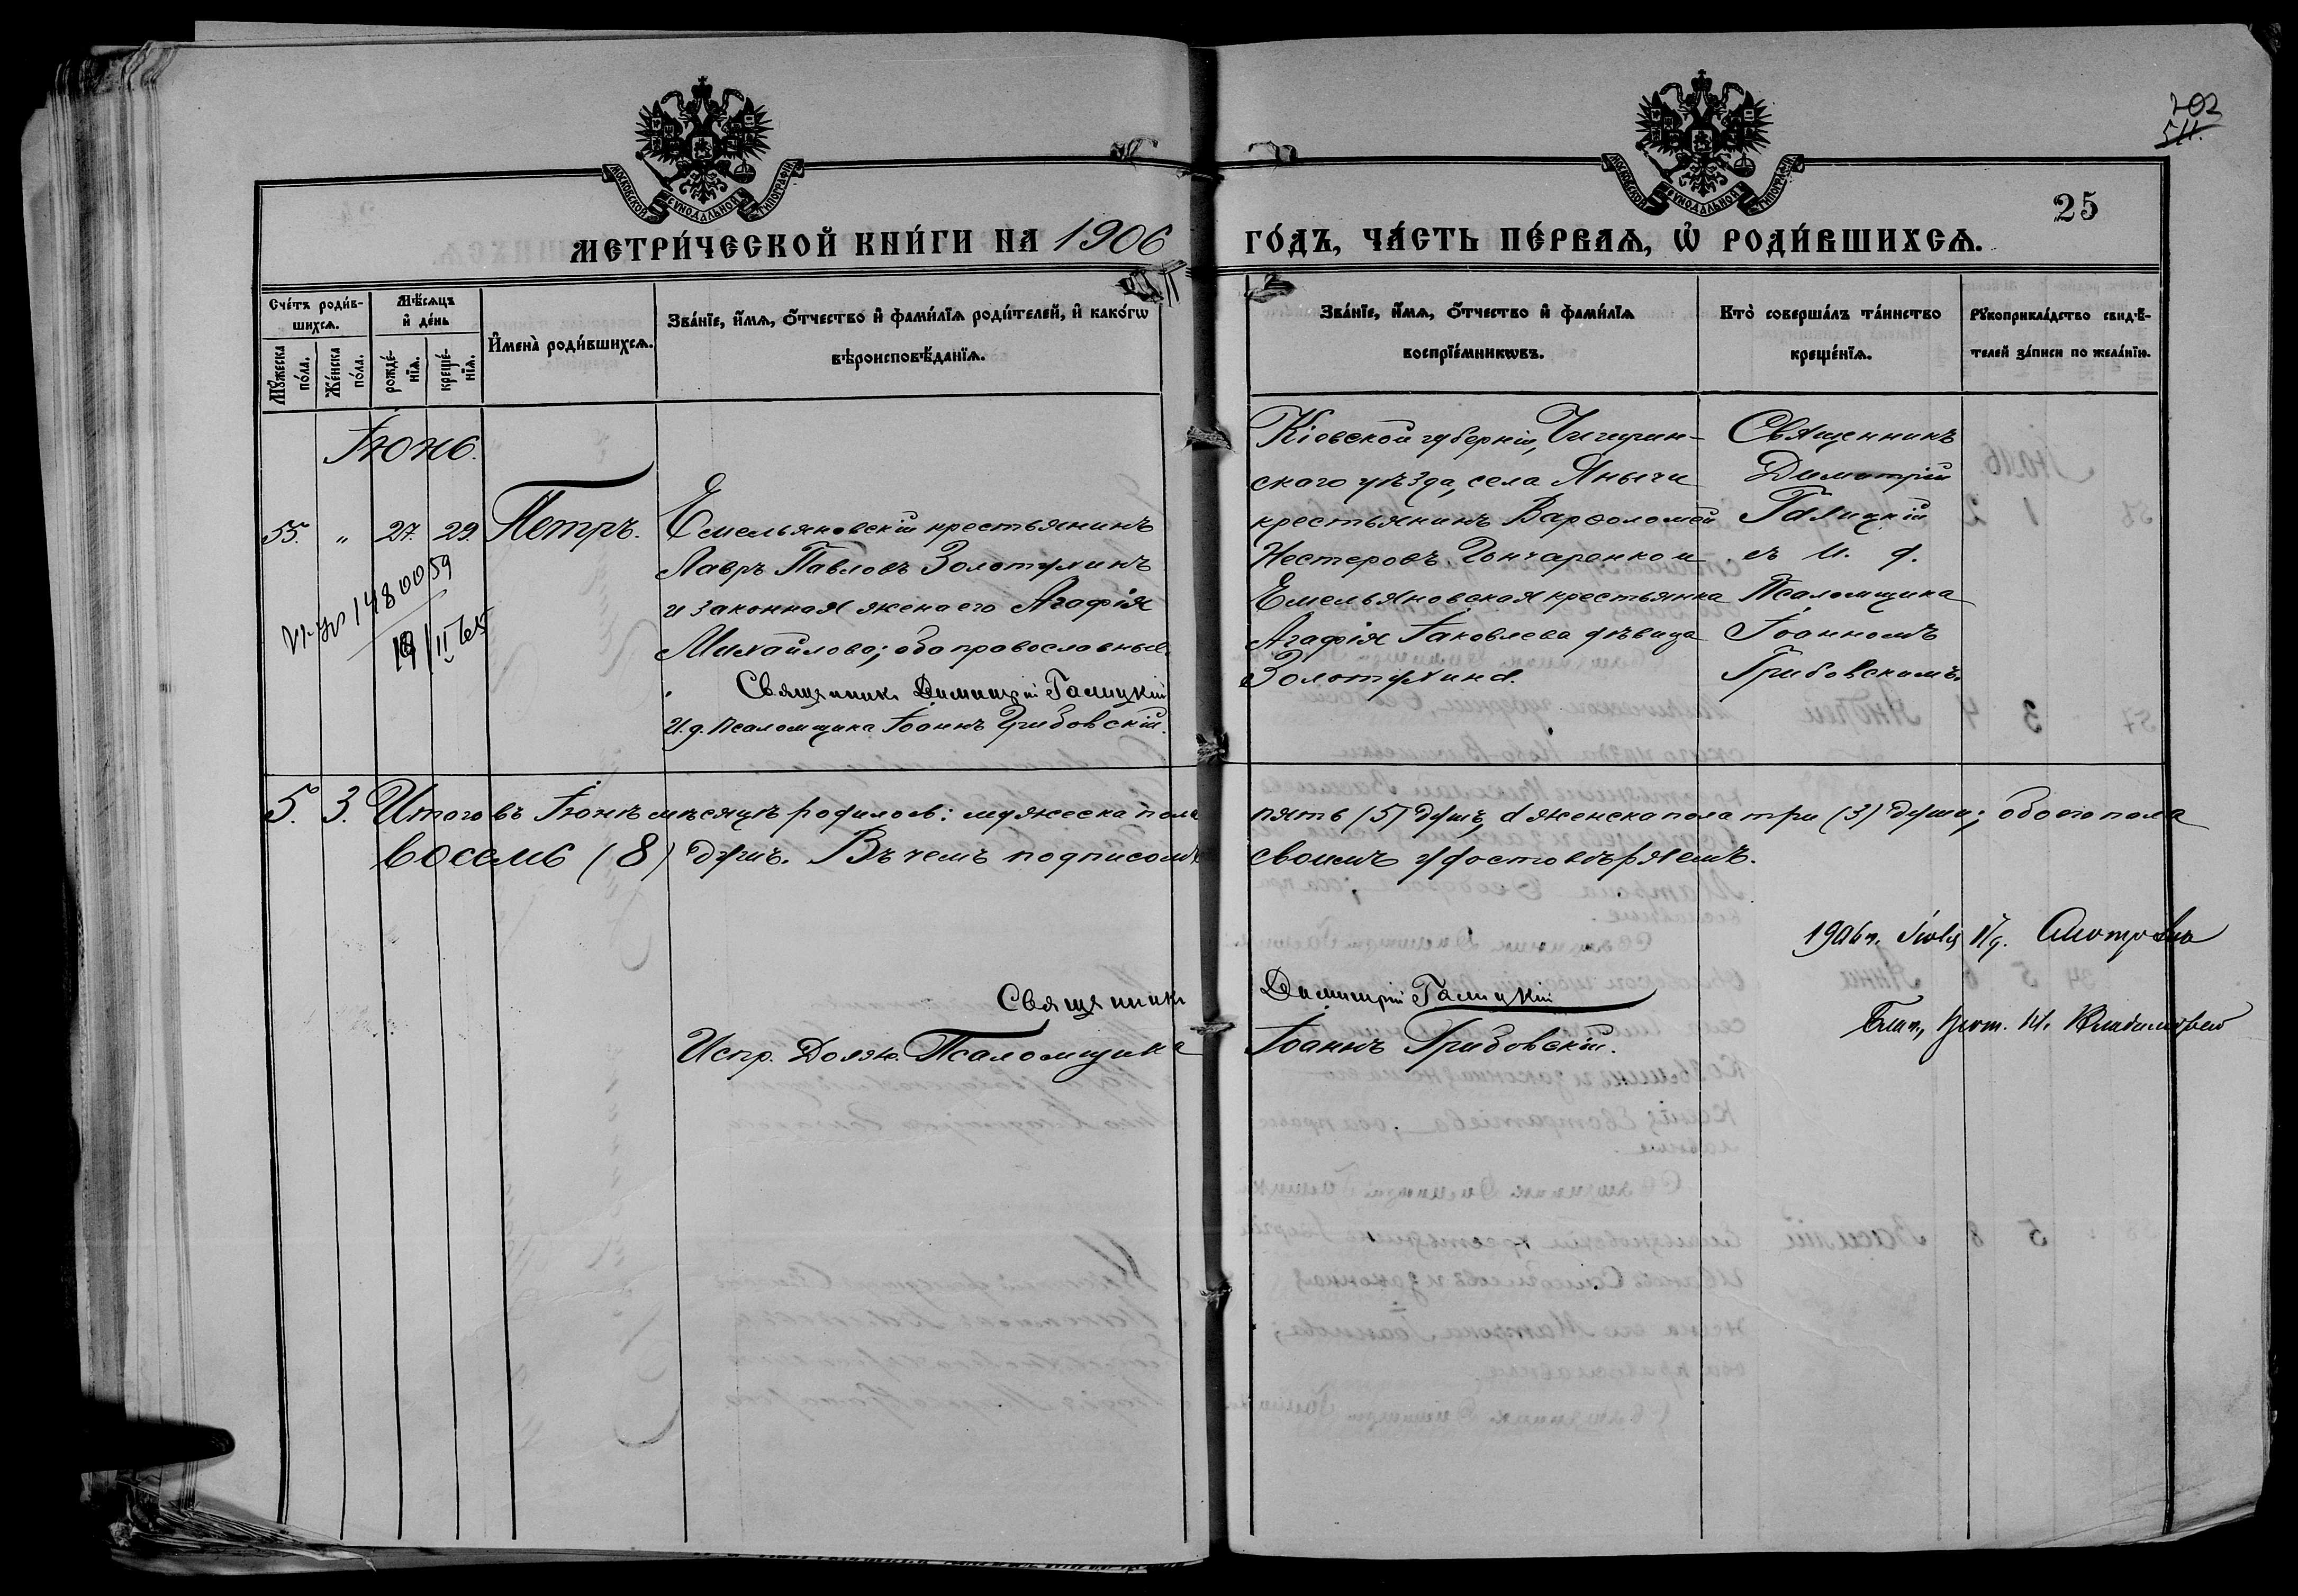 202
511.
МОСКОВСКОЙ СѴНОДАЛЬНОЙ ТИПОГРАФІИ
МОСКОВСКОЙ СѴНОДАЛЬНОЙ ТИПОГРАФІИ
25
МЕТРИ́ЧЕСКОЙ КНИ́ГИ НА 1906 ГО́ДЪ, ЧА́СТЬ ПЕ́РВАѦ, Ѡ҆ РОДИ́ВШИХСѦ.
Сче́тъ роди́в-
шихсѧ.
Мꙋ́жеска по́ла.
Же́нска по́ла.
Мѣ́сѧцъ и҆ де́нь
рожде́-нїѧ.
креще́-нїѧ.
И҆мена̀ роди́вшихсѧ.
Зва́нїе, и҆́мѧ, ѻ҆́тчество и҆ фами́лїѧ роди́телей, и҆ како́гѡ
вѣроисповѣ́данїѧ.
Зва́нїе, и҆́мѧ, ѻ҆́тчество и҆ фами́лїѧ
воспрїе́мникѡвъ.
Кто̀ соверша́лъ та́инство
креще́нїѧ.
Рꙋкоприкла́дство свидѣ́-
телей за́писи по жела́нїю.
Іюнь.
55. „ 27. 29. Петръ.
Емельяновскій крестьянинъ
Лавръ Павловъ Золотухинъ
и законная жена его Агафія
Михайлова; оба православные.
Священникъ Димитрій Галицкій
И. д. Псаломщика Іоаннъ Грибовскій.
1480059
Кіевской губерніи, Чигирин-
скаго уѣзда, села Янычи
крестьянинъ Варѳоломей
Нестеровъ Гончаренко и
Емельяновская крестьянка
Агафія Іаковлева дѣвица
Золотухина.
Священникъ
Димитрій
Галицкій
съ И. д.
Псаломщика
Іоанномъ
Грибовскимъ.
5. 3. Итого въ Іюнѣ мѣсяцѣ родилось: мужеска пола пять (5) душъ, а женска пола три (3) души; обоего пола
восемь (8) душъ. Въ чемъ подписомъ своимъ удостовѣряемъ.
1906 г. Іюля
Священникъ Димитрій Галицкій
Испр. Долж. Псаломщика Іоаннъ Грибовскій.